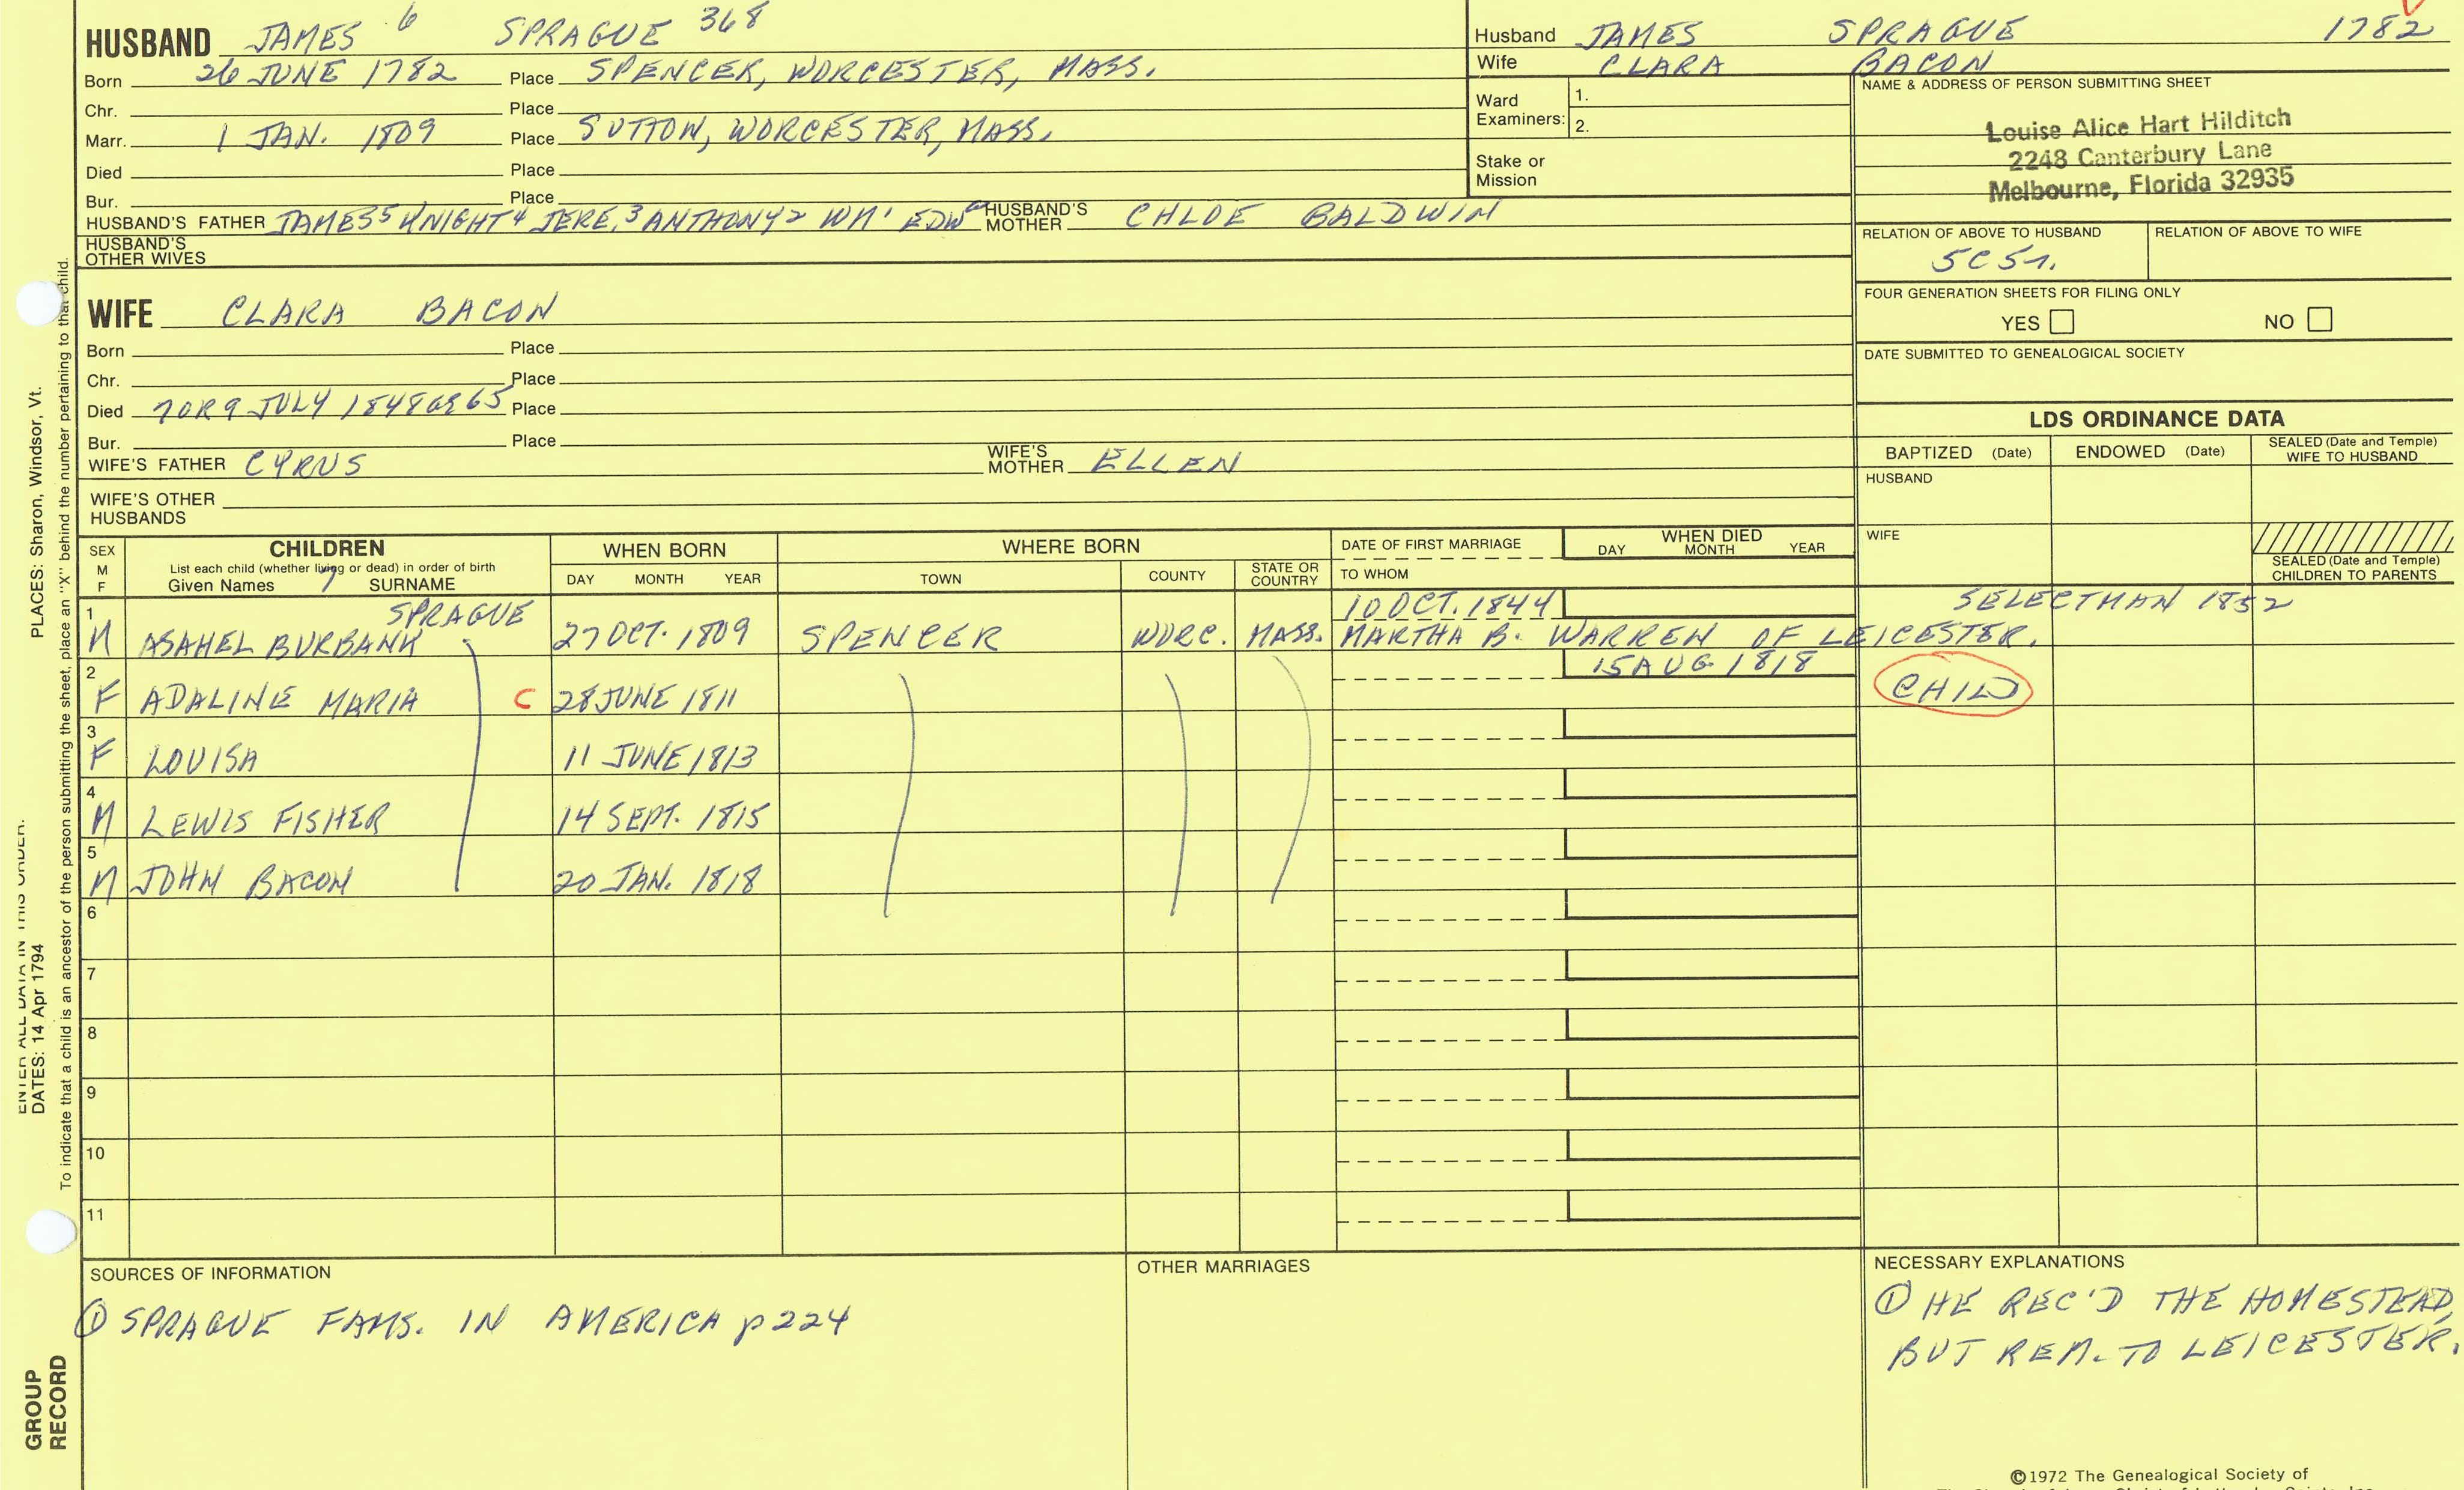 HUSBAND JAMES 6 SPRAGUE 368
Born 26 JUNE 1782 Place SPENCER, WORCESTER, MASS.
Chr. Place
Marr. 1 JAN. 1809 Place SUTTON, WORCESTER, MASS.
Died Place
Bur. Place
HUSBAND'S FATHER JAMES5 KNIGHT4 JERE.3 ANTHONY2 WM1 EDWa HUSBAND'S MOTHER CHLOE BALDWIN
HUSBAND'S OTHER WIVES
WIFE CLARA BACON
Born Place
Chr. Place
Died 7 OR 9 JULY 1848 OR 65 Place
Bur. Place
WIFE'S FATHER CYRUS WIFE'S MOTHER ELLEN
WIFE'S OTHER HUSBANDS
Husband JAMES SPRAGUE 1782
Wife CLARA BACON
Ward Examiners: 1.
2.
Stake or Mission
NAME & ADDRESS OF PERSON SUBMITTING SHEET
Louise Alice Hart Hilditch
2248 Canterbury Lane
Melbourne, Florida 32935
RELATION OF ABOVE TO HUSBAND RELATION OF ABOVE TO WIFE
5C5r.
FOUR GENERATION SHEETS FOR FILING ONLY
YES NO
DATE SUBMITTED TO GENEALOGICAL SOCIETY
LDS ORDINANCE DATA
BAPTIZED (Date) ENDOWED (Date) SEALED (Date and Temple) WIFE TO HUSBAND
HUSBAND
WIFE
SEALED (Date and Temple) CHILDREN TO PARENTS
SEX M F CHILDREN WHEN BORN WHERE BORN DATE OF FIRST MARRIAGE WHEN DIED
List each child (whether living or dead) in order of birth
Given Names 7 SURNAME DAY MONTH YEAR TOWN COUNTY STATE OR COUNTRY TO WHOM DAY MONTH YEAR
1 SPRAGUE 10 OCT. 1844 SELECTMAN 1852
M ASAHEL BURBANK 27 OCT. 1809 SPENCER WORC. MASS. MARTHA B. WARREN OF LEICESTER.
2 15 AUG 1818
F ADALINE MARIA C 28 JUNE 1811 CHILD
3
F LOUISA 11 JUNE 1813
4
M LEWIS FISHER 14 SEPT. 1815
5
M JOHN BACON 20 JAN. 1818
6
7
8
9
10
11
SOURCES OF INFORMATION
① SPRAGUE FAMS. IN AMERICA p224
OTHER MARRIAGES
NECESSARY EXPLANATIONS
① HE REC'D THE HOMESTEAD,
BUT REM. TO LEICESTER.
©1972 The Genealogical Society of
ENTER ALL DATA IN THIS ORDER.
DATES: 14 Apr 1794 PLACES: Sharon, Windsor, Vt.
To indicate that a child is an ancestor of the person submitting the sheet, place an "X" behind the number pertaining to that child.
GROUP
RECORD